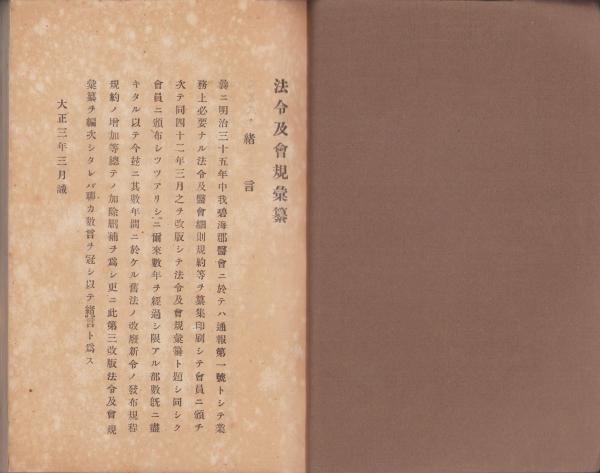 法令及會規彙纂
緒言
曩ニ明治三十五年中我碧海郡醫會ニ於テハ通報第一號トシテ業
務上必要ナル法令及醫會細則規約等ヲ纂集印刷シテ會員ニ頒チ
次テ同四十二年三月之ヲ改版シテ法令及會規彙纂ト題シ同シク
會員ニ頒布シツツアリシニ爾來數年ヲ經過シ限アル部數旣ニ盡
キタル以テ今玆ニ其數年間ニ於ケル舊法ノ改廢新令ノ發布規程
規約ノ增加等總テノ加除刪補ヲ爲シ更ニ此第三改版法令及會規
彙纂ヲ編次シタレバ聊カ數言ヲ冠シ以テ緒言ト爲ス
大正三年三月識